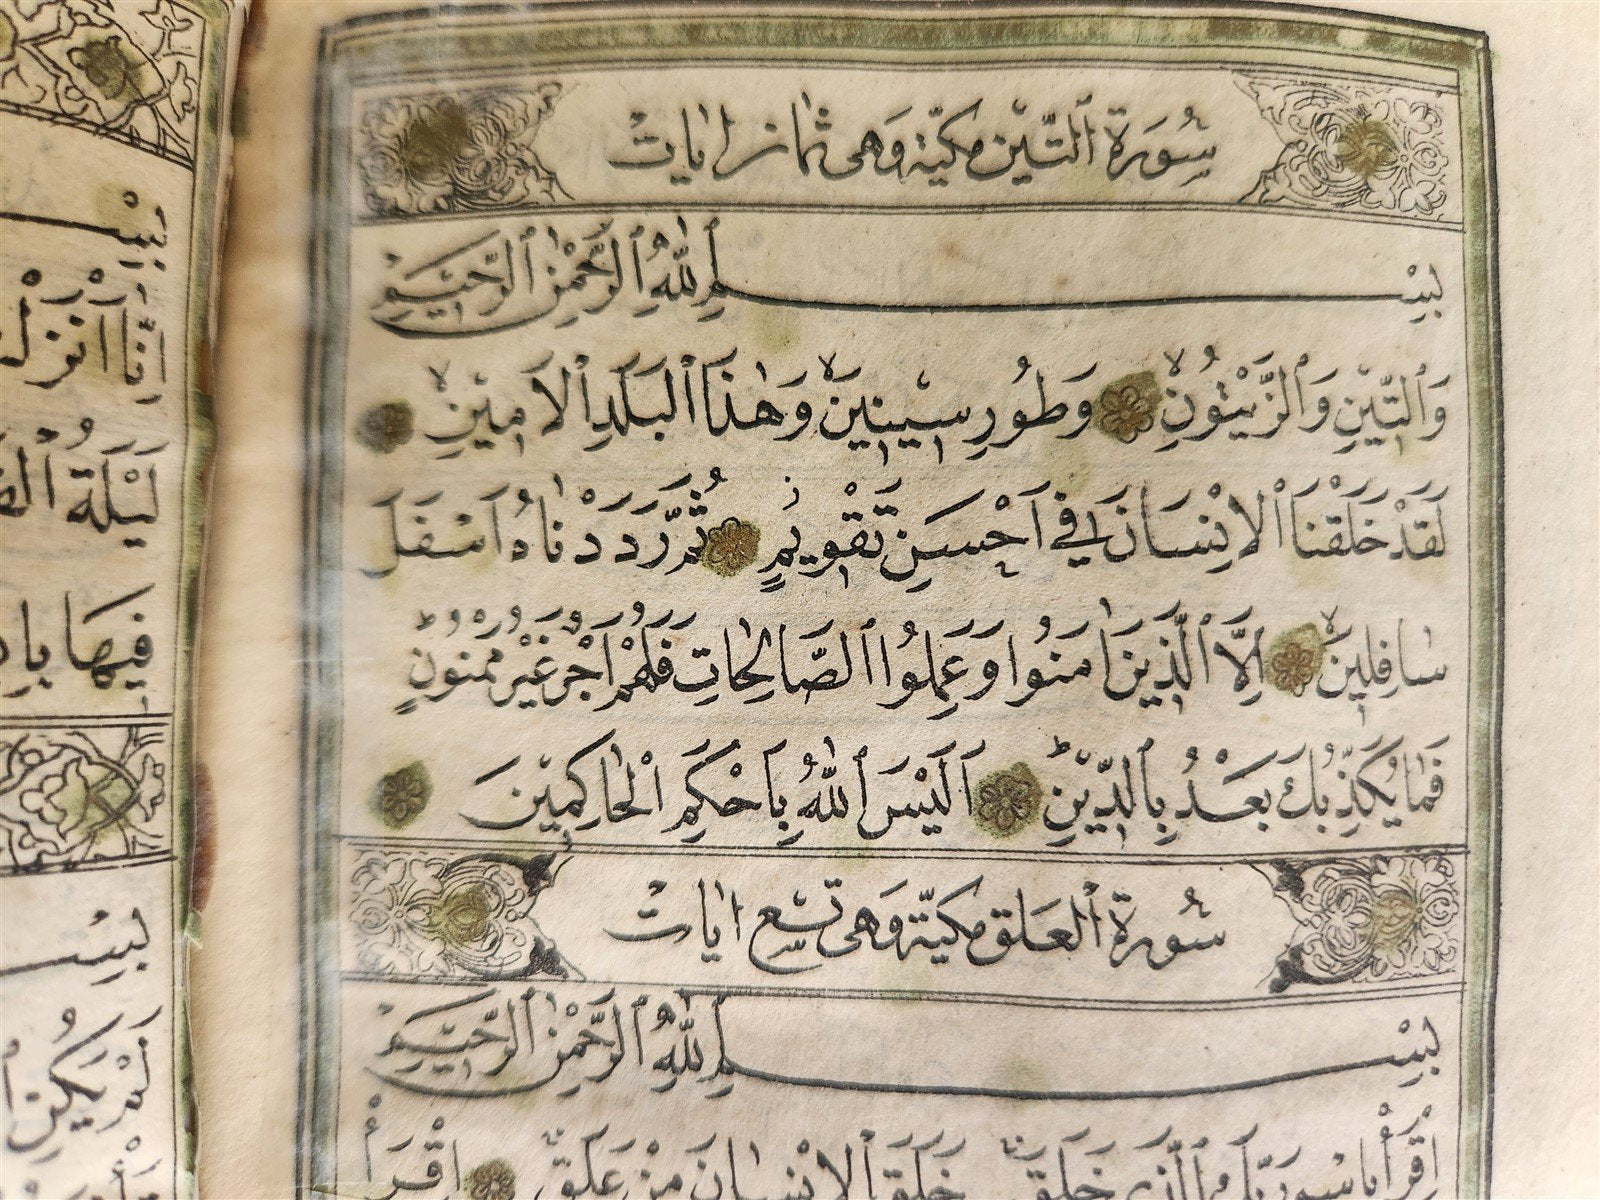 سُورَةُ ٱلتِّينِ مَكِّيَّة وَهِىَ ثَمَانِ اٰيَات
بِسْمِ ٱللّٰهِ ٱلرَّحْمٰنِ ٱلرَّحِيمِ
وَٱلتِّينِ وَٱلزَّيْتُونِۙ وَطُورِ سِينِينَۙ وَهٰذَا ٱلْبَلَدِ ٱلْاَمِينِۙ
لَقَدْ خَلَقْنَا ٱلْاِنْسَانَ فِٓي اَحْسَنِ تَقْوِيمٍۘ ثُمَّ رَدَدْنَاهُ اَسْفَلَ
سَافِلِينَۙ اِلَّا ٱلَّذِينَ اٰمَنُوا وَعَمِلُوا ٱلصَّالِحَاتِ فَلَهُمْ اَجْرٌ غَيْرُ مَمْنُونٍۜ
فَمَا يُكَذِّبُكَ بَعْدُ بِٱلدِّينِۜ اَلَيْسَ ٱللّٰهُ بِاَحْكَمِ ٱلْحَاكِمِينَ
سُورَةُ ٱلْعَلَق مَكِّيَّة وَهِىَ تِسْع اٰيَات
بِسْمِ ٱللّٰهِ ٱلرَّحْمٰنِ ٱلرَّحِيمِ
اِقْرَأْ بِاسْمِ رَبِّكَ ٱلَّذِي خَلَقَۚ خَلَقَ ٱلْاِنْسَانَ مِنْ عَلَقٍۚ اِقْرَأْ
بِسْـ
اِنَّٓا اَنْزَلْنَـ
لَيْلَةُ
فِيهَا بِاِذْ
بِسْـ
لَمْ يَكُنِ